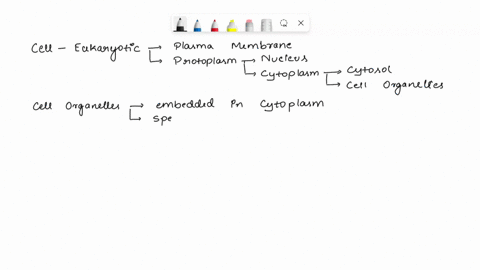 Cell - Eukaryotic → Plasma Membrane
→ Protoplasm → Nucleus
→ Cytoplasm → Cytosol
→ Cell Organelles
Cell Organelles → embedded in Cytoplasm
→ spe